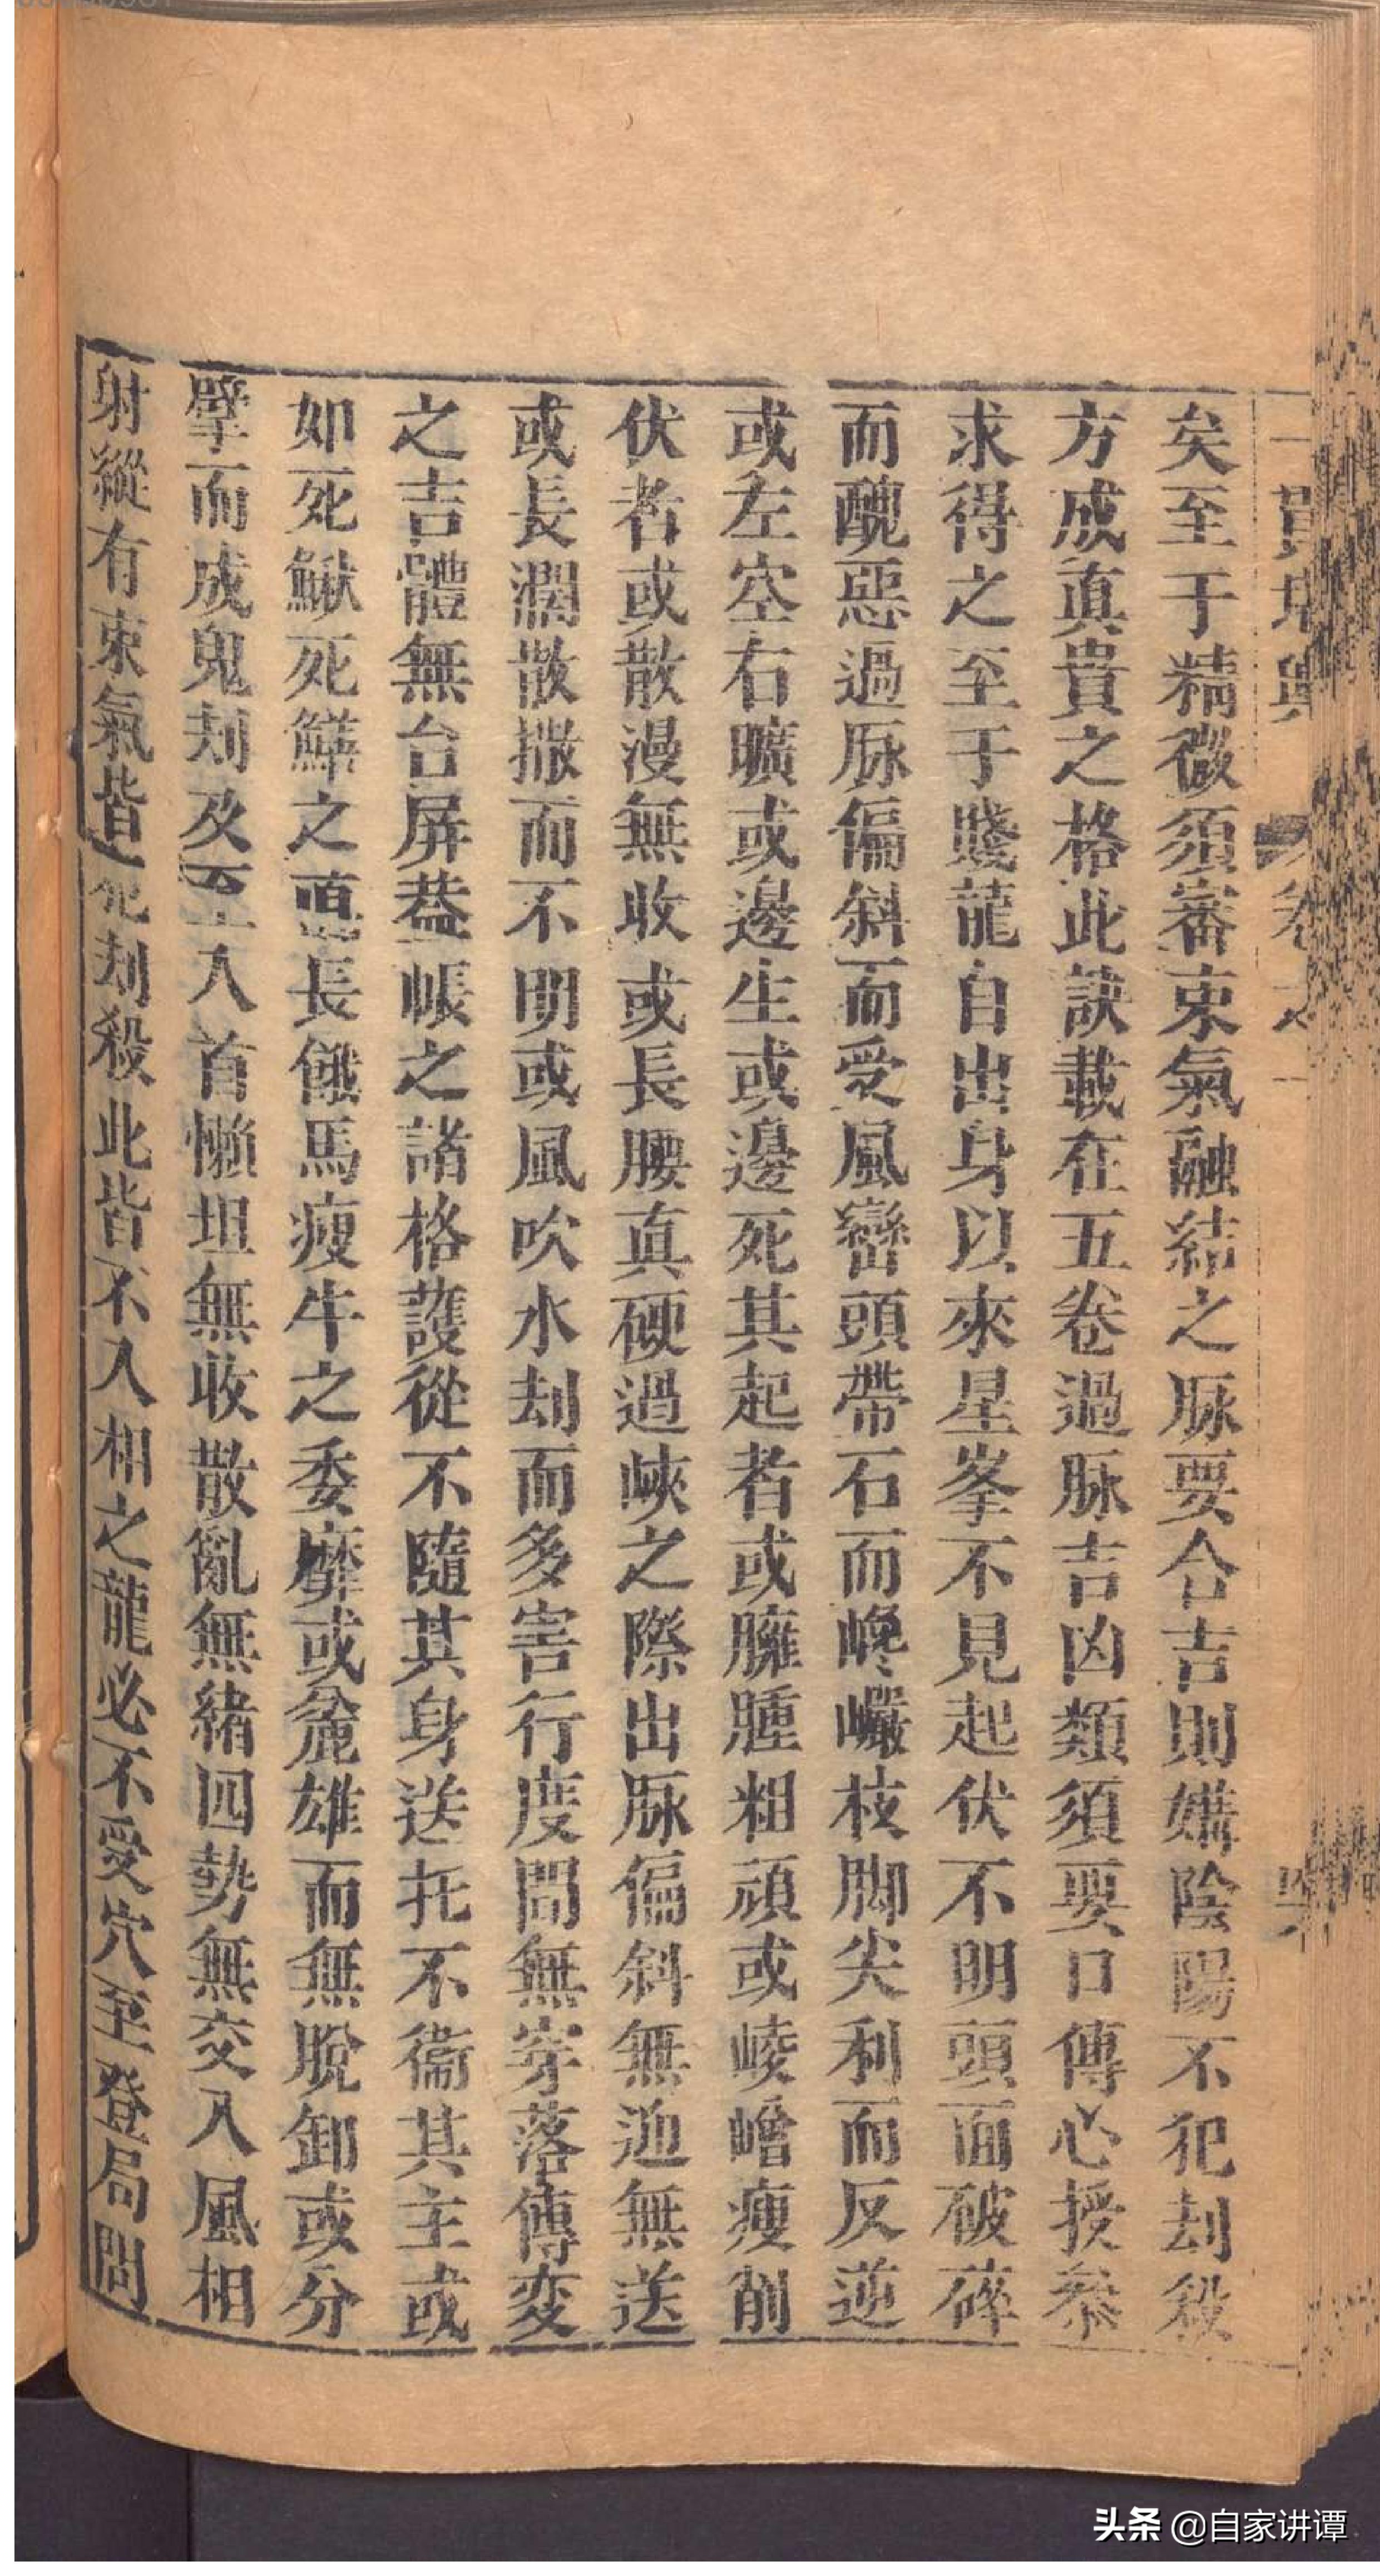 矣至于精微須審束氣融結之脉要合吉則媾陰陽不犯刦殺
方成真貴之格此訣載在五卷過脉吉凶類須要口傳心授叅
求得之至于賤龍自出身以來星峯不見起伏不明頭面破碎
而醜惡過脉偏斜而受風巒頭帶石而巉巗枝脚尖利而反逆
或左空右曠或邊生或邊死其起者或臃腫粗頑或崚嶒瘦削
伏者或散漫無收或長腰真硬過峽之際出脉偏斜無迎無送
或長濶散撒而不明或風吹水刦而多害行度間無穿落傳変
之吉體無台屏葢帳之諸格護從不隨其身送托不衞其主或
如死鰍死鱓之直長餓馬瘦牛之委靡或麄雄而無脫卸或分
擘而成鬼刦及至入首懶坦無收散亂無緒四勢無交八風相
射縱有束氣皆犯刦殺此皆不入相之龍必不受穴至登局間
頭条 @自家讲谭